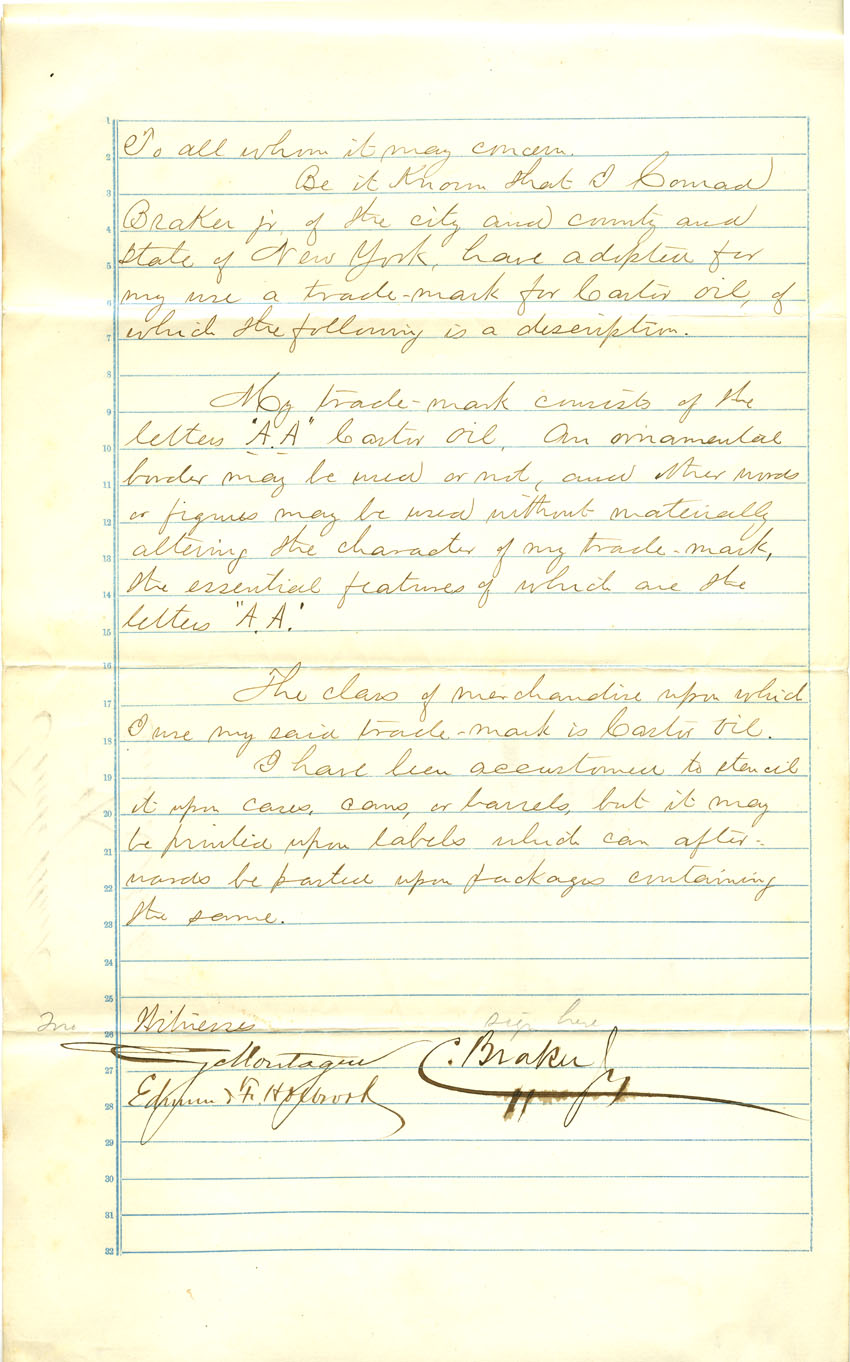 To all whom it may concern.
Be it Known that I Conrad
Braker jr. of the city and county and
state of New York, have adopted for
my use a trade-mark for Castor oil, of
which the following is a description.
My trade-mark consists of the
letters "A.A" Castor Oil. An ornamental
border may be used or not, and other words
or figures may be used without materially
altering the character of my trade-mark,
the essential features of which are the
letters "A.A."
The class of merchandise upon which
I use my said trade-mark is Castor Oil.
I have been accustomed to stencil
it upon cases, cans, or barrels, but it may
be printed upon labels which can after-
wards be pasted upon packages containing
the same.
Witnesses
sign here
Montague
C. Braker Jr
Edwin F. Holbrook
1
2
3
4
5
6
7
8
9
10
11
12
13
14
15
16
17
18
19
20
21
22
23
24
25
26
27
28
29
30
31
32